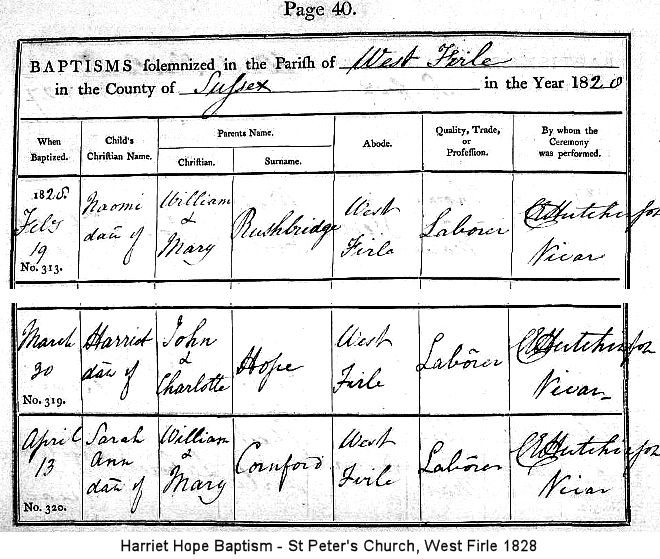 Page 40.
BAPTISMS solemnized in the Parish of West Firle
in the County of Sussex in the Year 1828
When Baptized.
Child's Christian Name.
Parents Name.
Christian.
Surname.
Abode.
Quality, Trade, or Profession.
By whom the Ceremony was performed.
1828.
Feby
19
No. 313.
Naomi
daũ of
William
&
Mary
Rushbridge
West
Firle
Laborer
Hutchinson
Vicar
March
30
No. 319.
Harriet
daũ of
John
&
Charlotte
Hope
West
Firle
Laborer
Hutchinson
Vicar
April
13
No. 320.
Sarah
Ann
daũ of
William
&
Mary
Cornford
West
Firle
Laborer
Hutchinson
Vicar
Harriet Hope Baptism - St Peter's Church, West Firle 1828